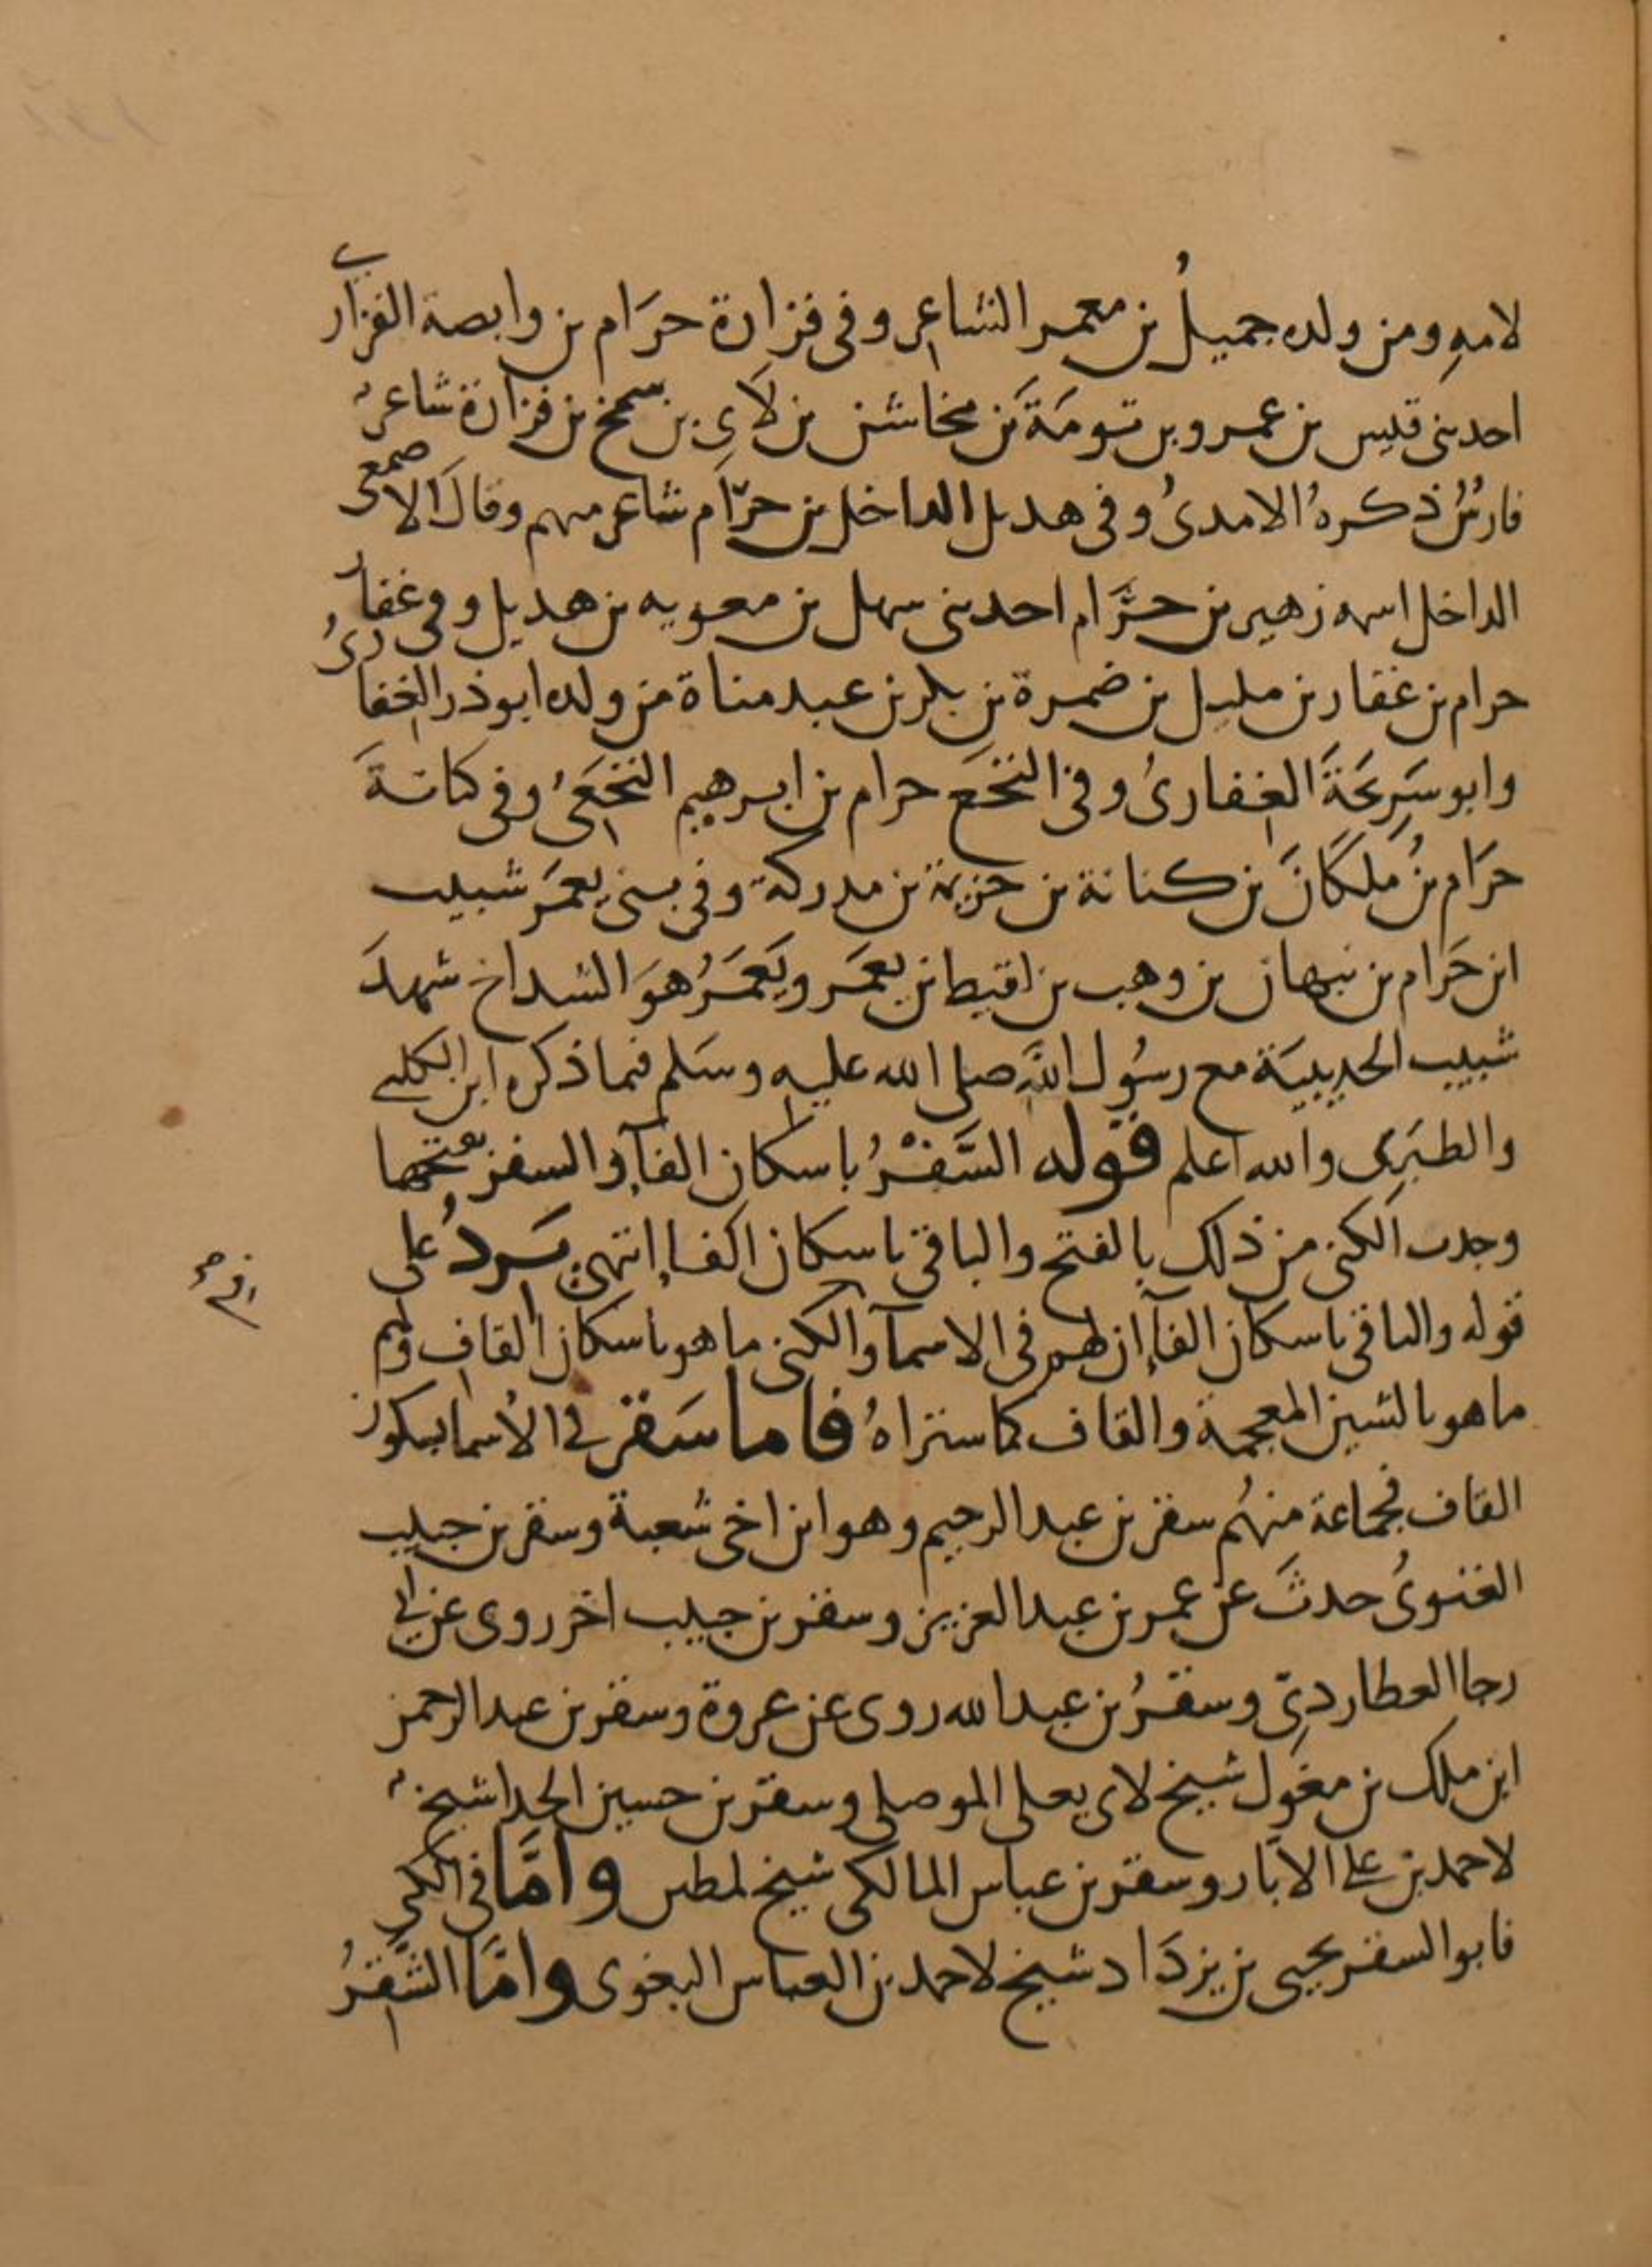 لامه ومن ولده جميلُ بن معمر الشاعر وفى فزارة حرَام بن وابصة الفزارى
احد بنى قيس بن عمرو بن تومَة بن مخاشن بن لَاىِ بن سمخ بن فزارة شاعرٌ
فارسٌ ذكرهُ الامدىُ وفى هديل الداخل بن حرَام شاعر منهم وقال الاصمعى
الداخل اسمه زهير بن حرَام احد بنى سهل بن معويه بن هديل وفى غفار
حرام بن غفار بن مليل بن ضمرة بن بكر بن عبد مناة من ولده ابو ذر الغفارىُ
وابو سَرِيحَةَ الغفارىُ وفى النخَع حرام بن ابرهيم النخَعىُ وفى كنانةَ
حرَام بنُ مَلكَانَ بن كنانة بن خزيمة بن مدركة وفى بنى يعمَر شبيب
ابن حَرام بن نبهان بن وهب بن لقيط بن يعمَر ويَعمَرُ هوَ الشداخ شهدَ
شبيب الحديبيَة مع رسُول اللهِ صلى الله عليه وسَلم فيما ذكره ابن الكلبى
والطبَرى والله اعلم قوله السَّفْرُ باسكان الفآ والسفر بفتحها
وجدت الكنى من ذلك بالفتح والباقى باسكان الفاء انتهى يَردُ على
قوله والباقى باسكان الفآ ان لهم فى الاسمآ والكنى ما هو باسكان القاف ولهم
ما هو بالشين المعجمة والقاف كما ستراهُ فاما سَقر فى الأسما بسكون
القاف فجماعة منهُم سقر بن عبد الرحيم وهو ابن اخى شعبة وسقر بن حبيب
الغنوىُ حدثَ عن عمر بن عبد العزيز وسقر بن حبيب اخر روى عن ابى
رجا العطاردِىّ وسقرُ بن عبد الله روى عن عروة وسقر بن عبد الرحمن
ابن ملك بن مغوَل شيخ لابى يعلى الموصلى وسقر بن حسين الحدا شيخٌ
لاحمد بن على الابّار وسقر بن عباس المالكى شيخ لمطين وامَّا فى الكنى
فابو السقر يحيى بن يزدَاد شيخ لاحمد بن العباس البغوى وامَّا الشَّقِرُ